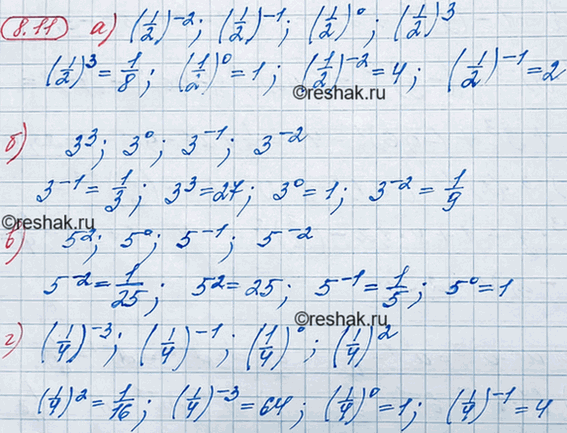 8.11 а) (1/2)^-2; (1/2)^-1; (1/2)^0; (1/2)^3
(1/2)^3 = 1/8; (1/2)^0 = 1; (1/2)^-2 = 4; (1/2)^-1 = 2
©reshak.ru
б) 3^3; 3^0; 3^-1; 3^-2
3^-1 = 1/3; 3^3 = 27; 3^0 = 1; 3^-2 = 1/9
©reshak.ru
в) 5^2; 5^0; 5^-1; 5^-2
5^-2 = 1/25; 5^2 = 25; 5^-1 = 1/5; 5^0 = 1
©reshak.ru
г) (1/4)^-3; (1/4)^-1; (1/4)^0; (1/4)^2
(1/4)^2 = 1/16; (1/4)^-3 = 64; (1/4)^0 = 1; (1/4)^-1 = 4